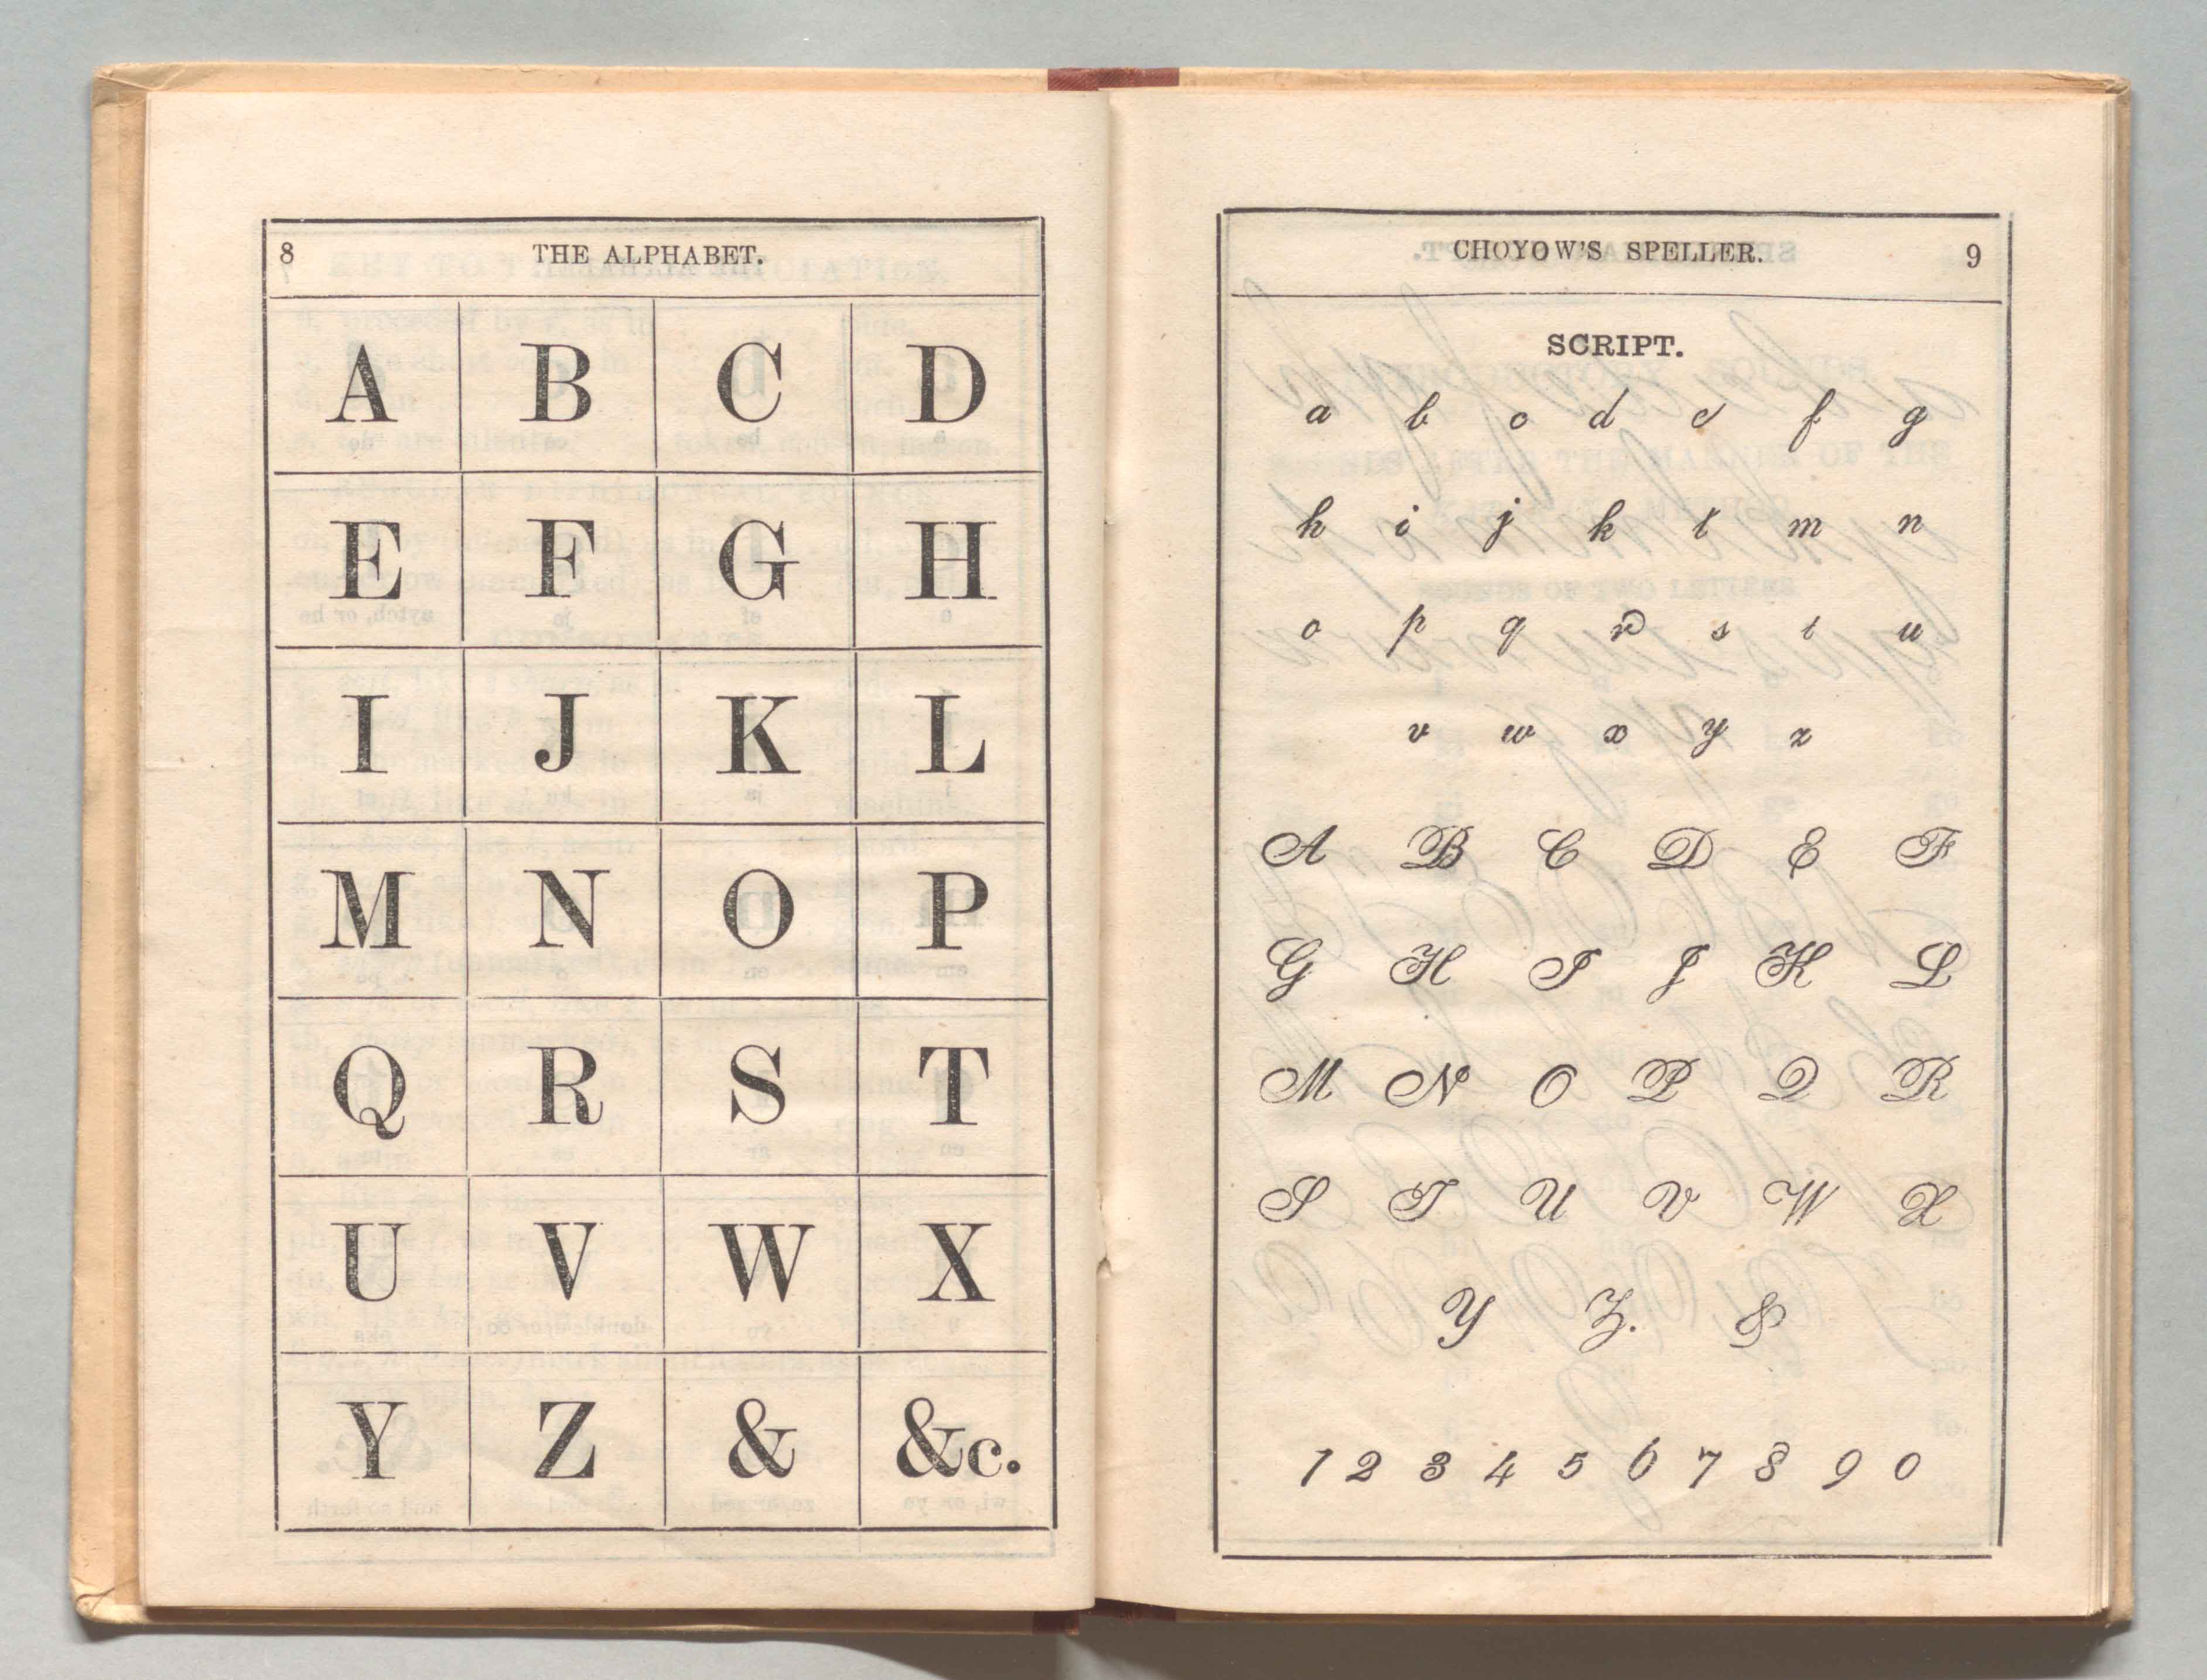 8 THE ALPHABET.
A B C D
E F G H
I J K L
M N O P
Q R S T
U V W X
Y Z & &c.
CHOYOW'S SPELLER. 9
SCRIPT.
a b c d e f g
h i j k l m n
o p q r s t u
v w x y z
A B C D E F
G H I J K L
M N O P Q R
S T U V W X
Y Z. &
1 2 3 4 5 6 7 8 9 0